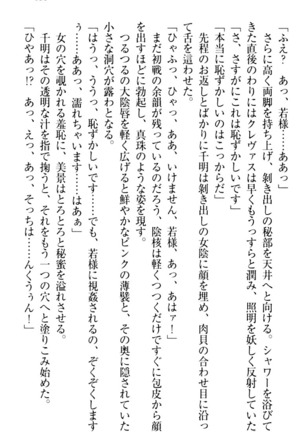 「ふえ？　あっ、若様……ああっ」
さらに高く両脚を持ち上げ、剥き出しの秘部を天井へと向ける。シャワーを浴びて
きた直後のわりにはクレヴァスは早くもうっすらと潤み、照明を妖しく反射していた。
「さ、さすがにこれは恥ずかしいです」
「本当に恥ずかしいのはこっからだ」
先程のお返しとばかりに千明は剥き出しの女陰に顔を埋め、肉貝の合わせ目に沿っ
て舌を這わせた。
「ひゃふっ、ひゃっ、ああ、いけません、若様、あっ、あはァ！」
まだ初戦の余韻が残っているのだろう、陰核は軽くつつくだけですぐに包皮から顔
を出すほどに勃起し、真珠のような姿を現す。
つるつるの大陰唇を軽く広げると鮮やかなピンクの薄襞と、その奥に隠されていた
小さな洞穴が露わとなる。
「はうっ、ううっ、恥ずかしいです……でも、若様に視姦されるの、ぞくぞくします
う……ああ、濡れちゃいます……はあぁ」
女の穴を覗かれる羞恥に、美景はとろとろと秘蜜を溢れさせる。
千明はその透明な汁を指で掬うと、それをもう一つの穴へと塗りこみ始めた。
「ひやああっ!?　あっ、えっ、あっ、そっちは……んくうぅん！」